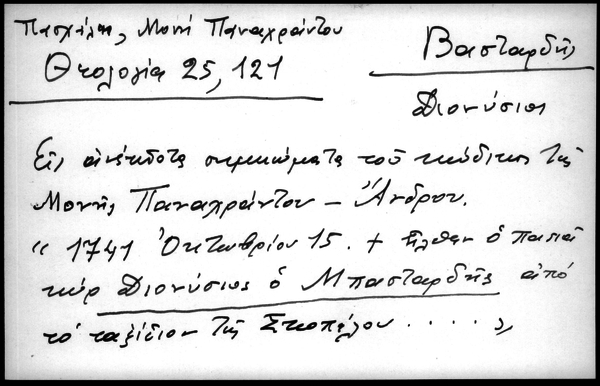 Πασχάλης, Μονή Παναχράντου
Θεολογία 25, 121
Βασταρδής
Διονύσιος
Εἰς ἀνέκδοτα σημειώματα τοῦ κώδικος τῆς
Μονῆς Παναχράντου – Ἄνδρου.
« 1741 Ὀκτωβρίου 15. + ἦλθεν ὁ παπᾶ
κύρ Διονύσιος ὁ Μπασταρδῆς ἀπό
τό ταξίδιον τῆς Σκοπέλου . . . . . »